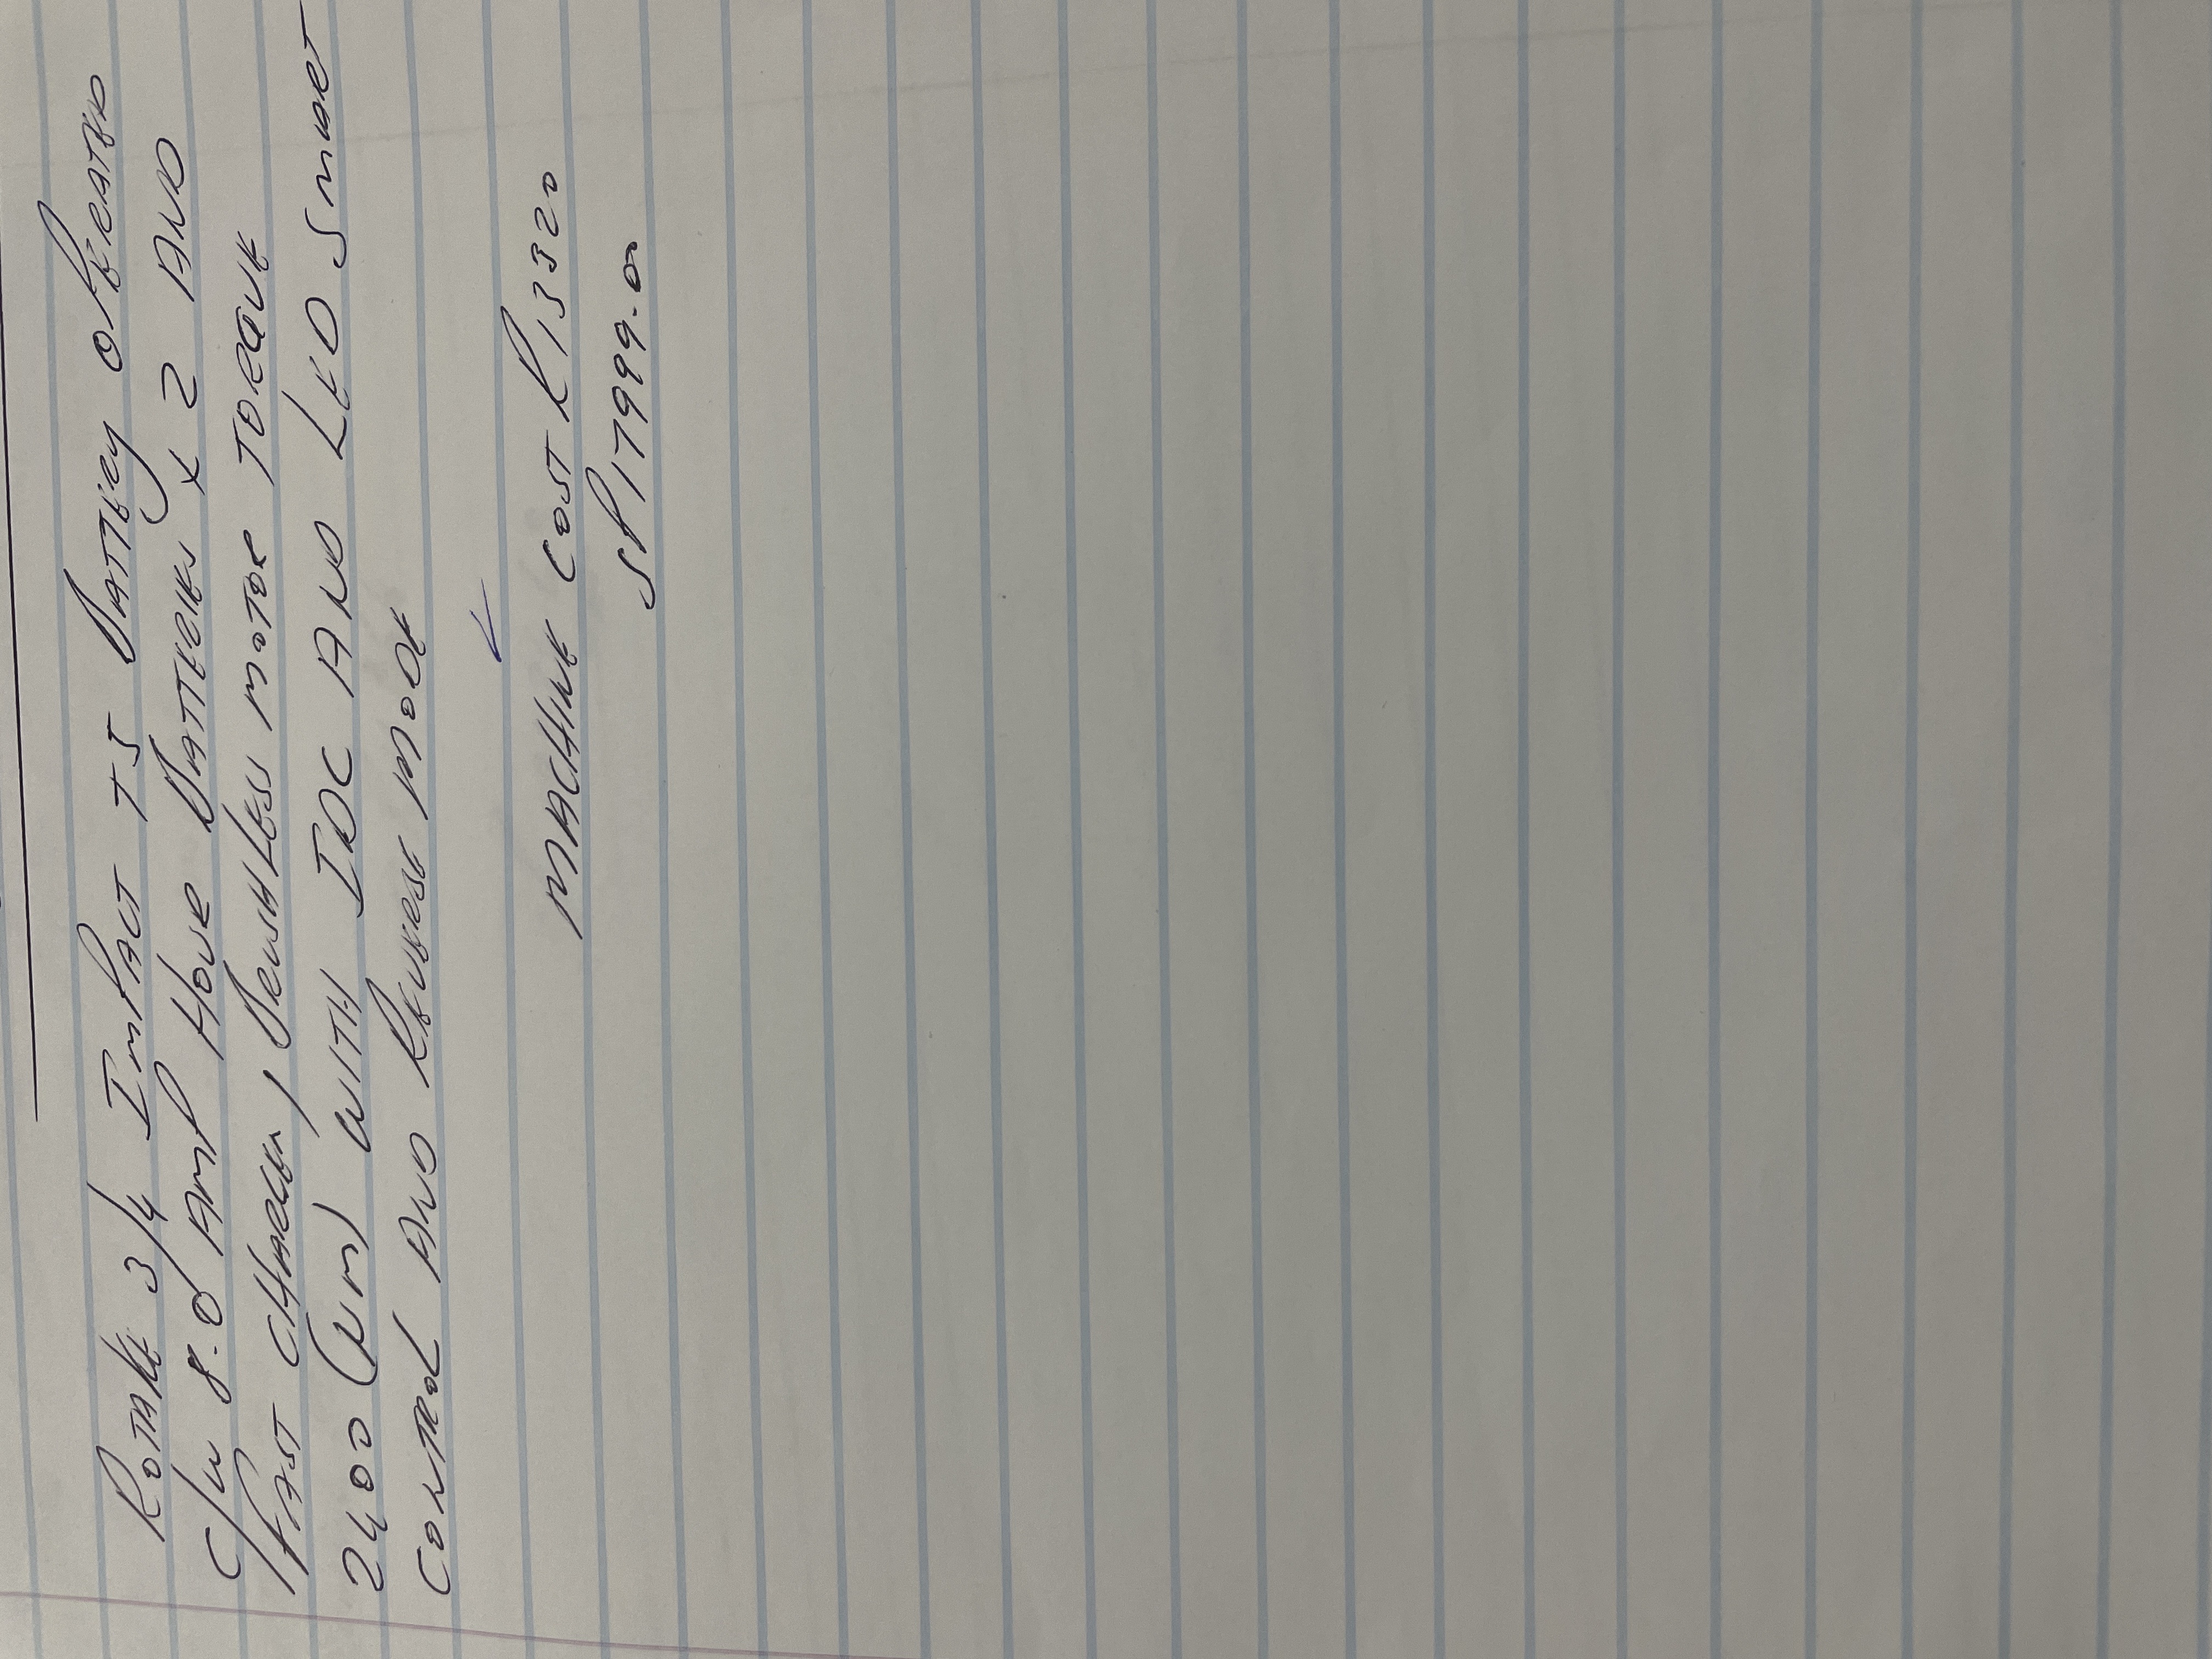 ROTAKE 3/4 IMPACT T5 BATTERY OPERATED
C/W 8.0 AMP HOUR BATTERIES X 2 AND
FAST CHARGER, BRUSHLESS MOTOR TORQUE
2400 (NM) WITH IDC AND LED SMART
CONTROL AND REVERSE MODE
MACHINE COST R13320
SP 17999.00